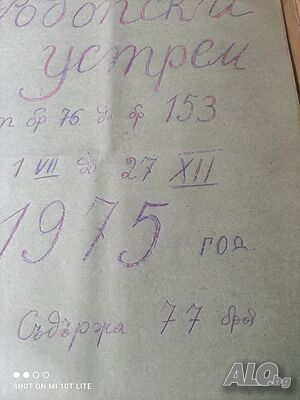 Родопски
устрем
от бр 76. до бр 153
1 VII до 27 XII
1975 год.
Съдържа 77 броя
SHOT ON MI 10T LITE
ALO.bg